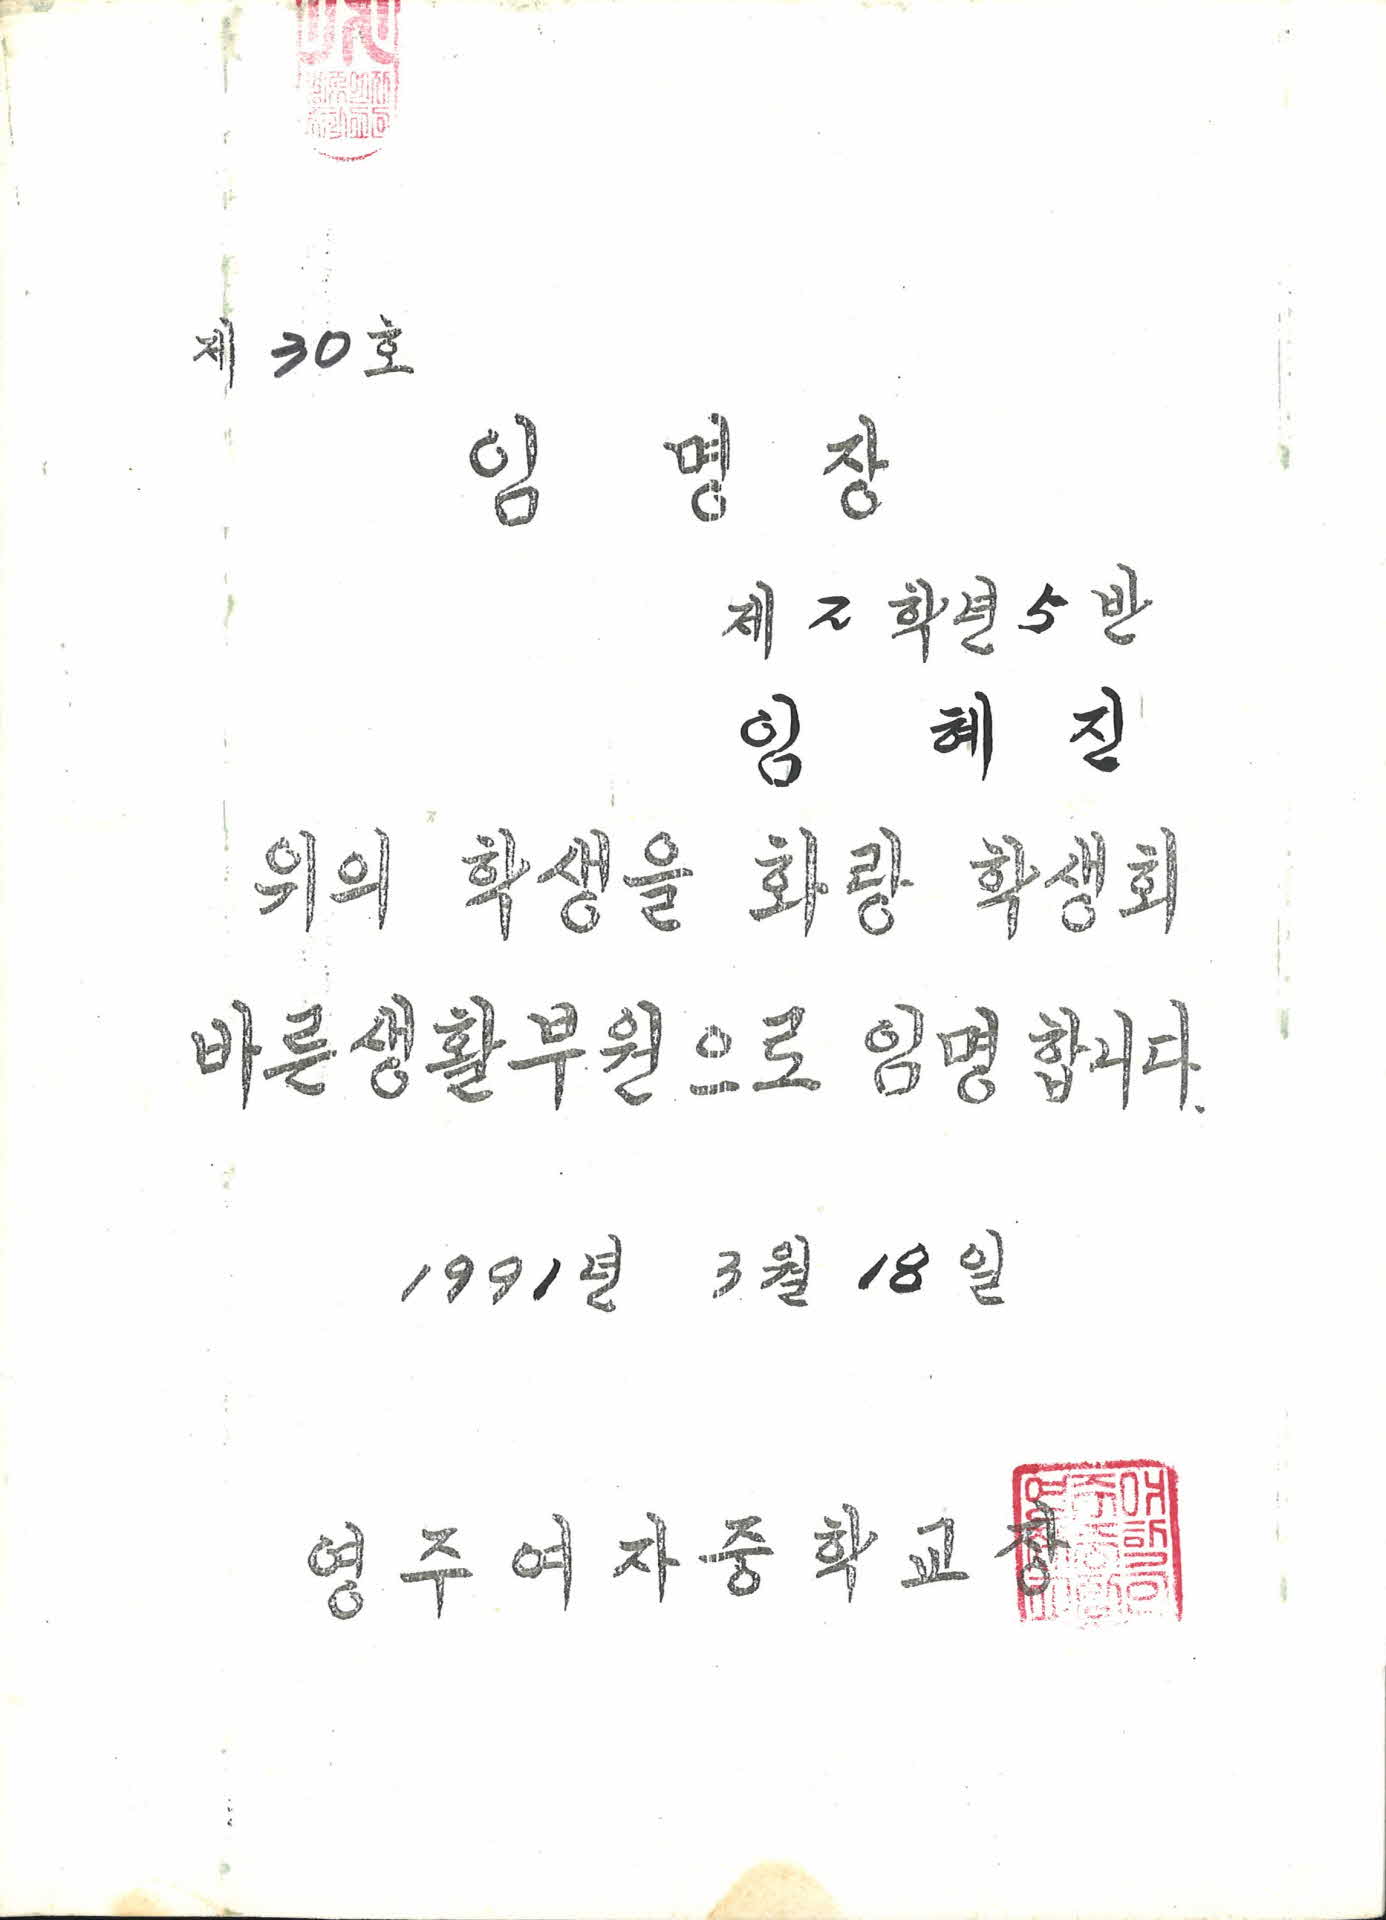 제 30 호
임 명 장
제 2 학년 5 반
임 혜 진
위의 학생을 화랑 학생회
바른생활부원으로 임명합니다.
1991년 3월 18일
영주여자중학교장